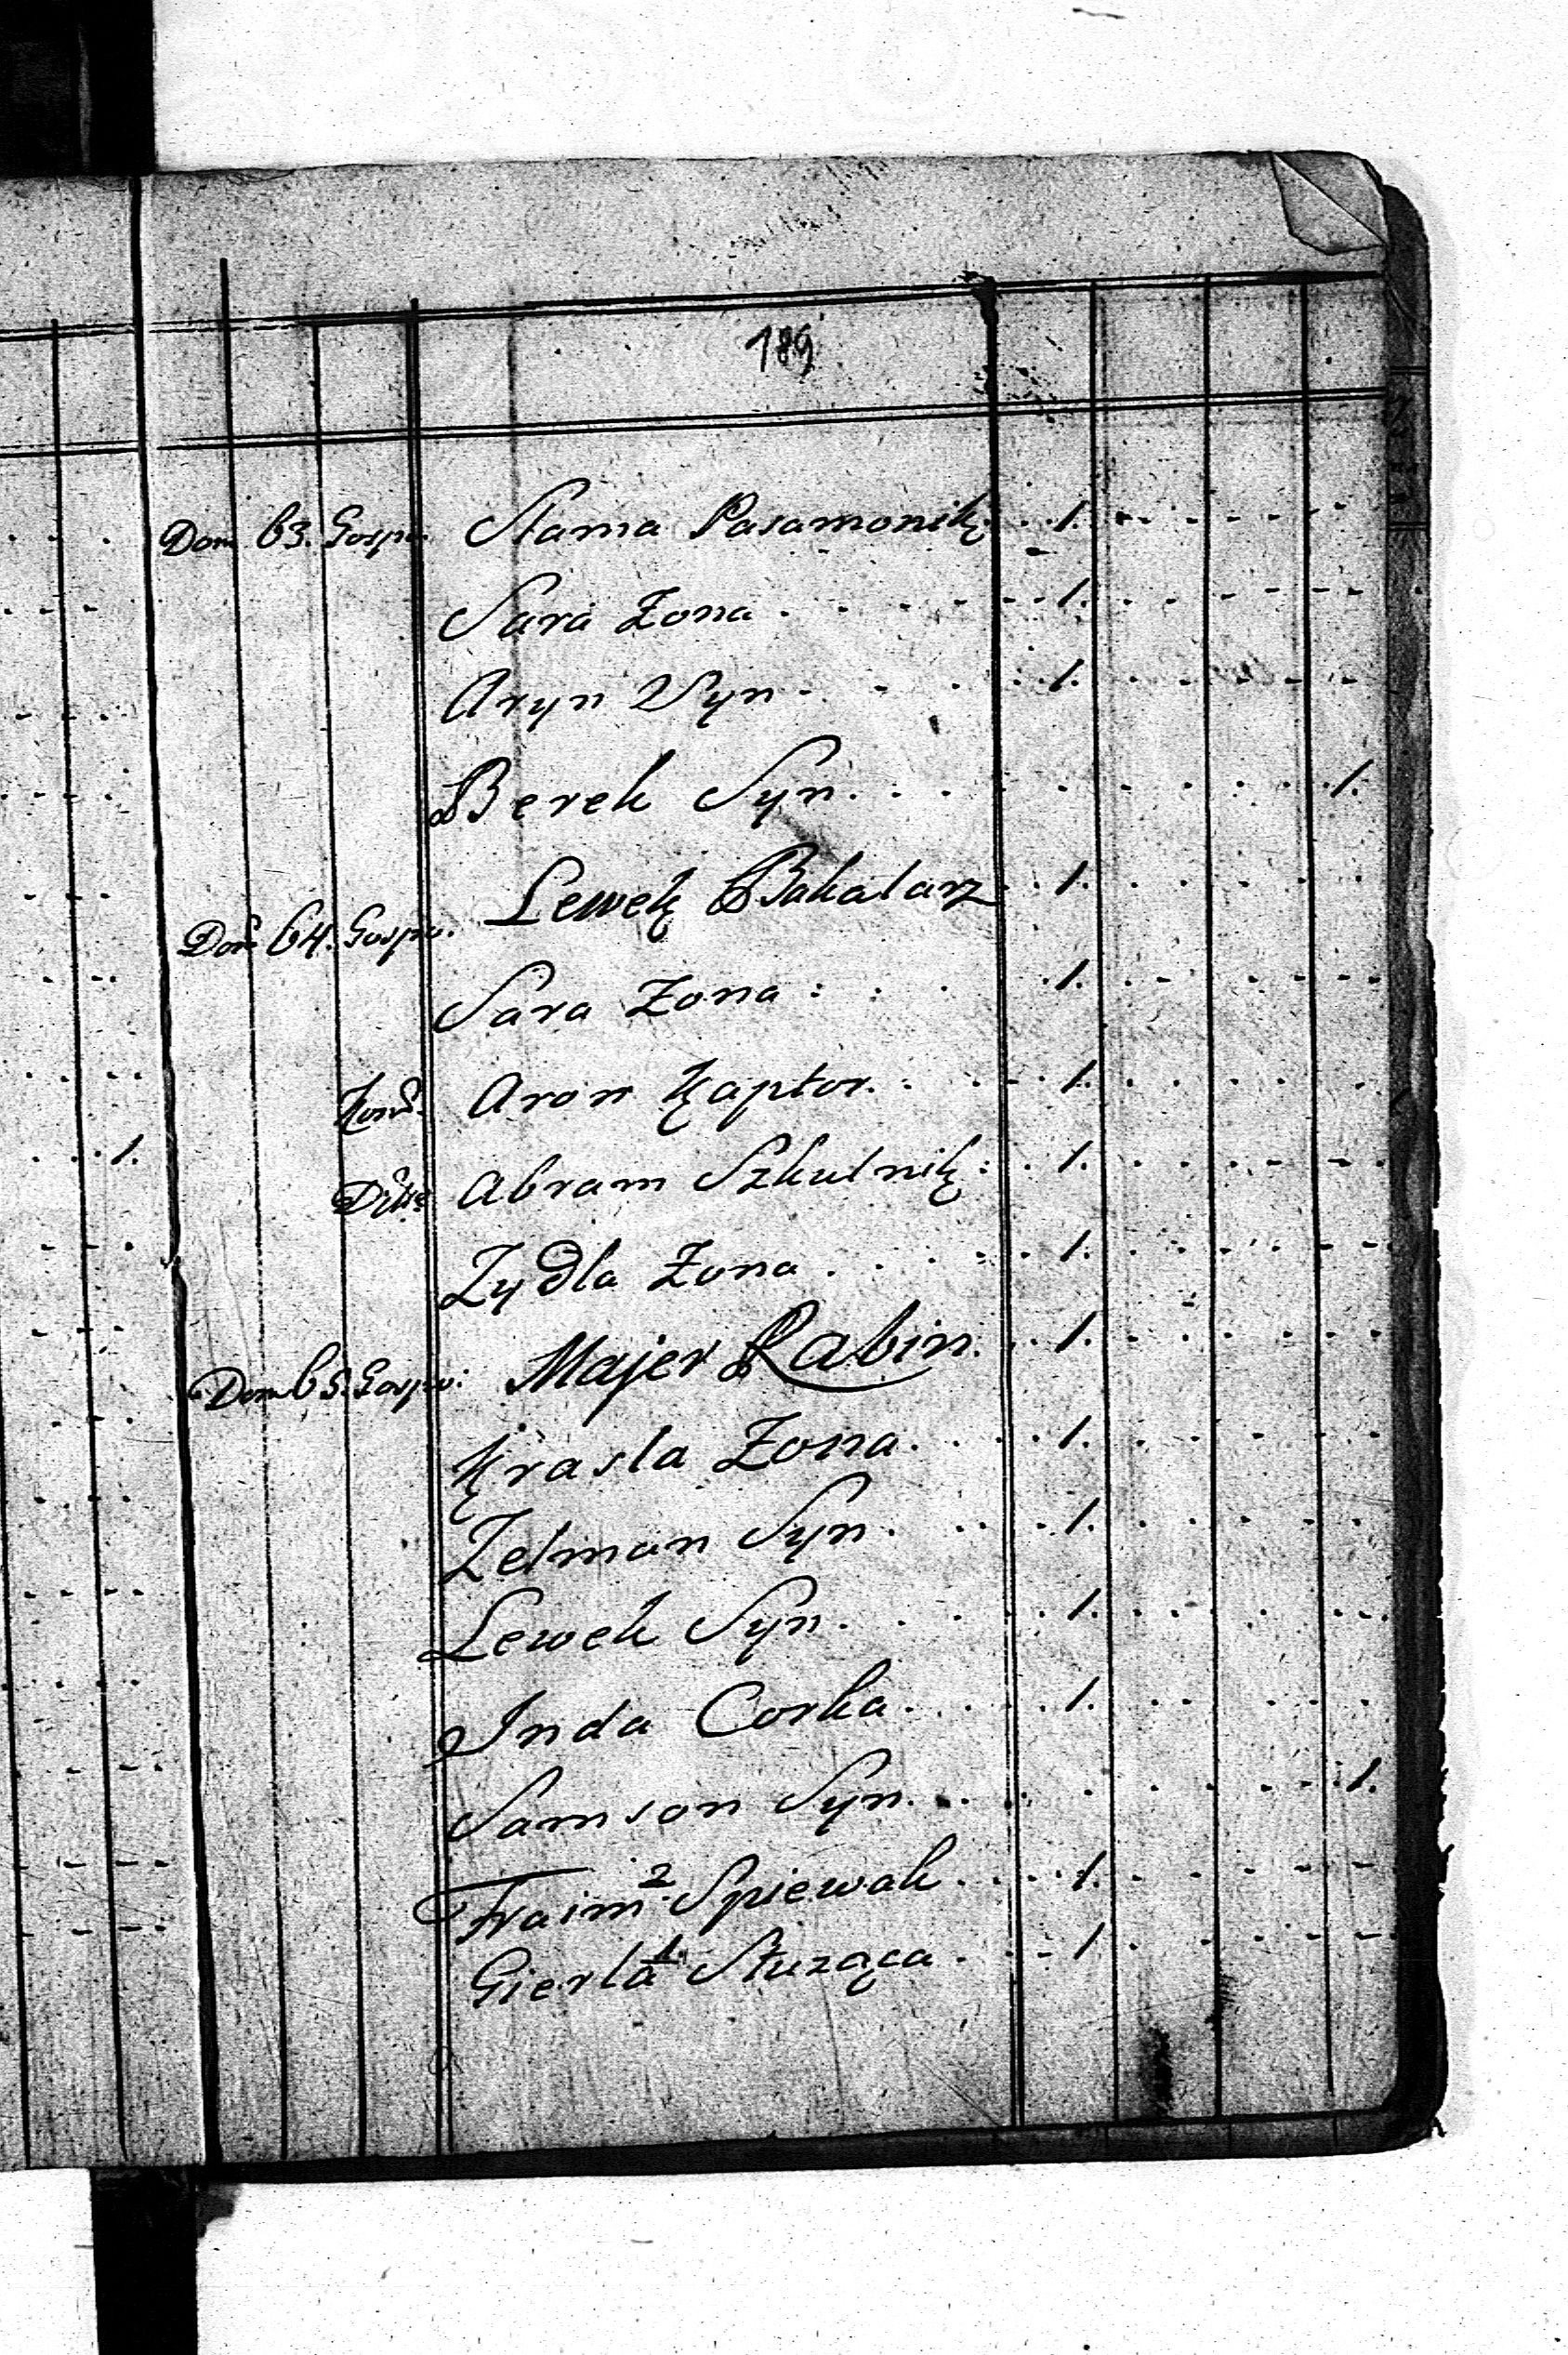 189
Dom 63. Gosp. Slama Pasamonik . . 1.
Sara Zona . 1.
Aryn Syn . 1.
Berek Syn . 1.
Dom 64. Gosp. Lewek Bakalarz . 1.
Sara Zona : 1.
Kom. Aron Kaptor . 1.
Ditto Abram Szkulnik : 1.
Zydla Zona . 1.
Dom 65. Gosp: Majer Rabin . 1.
Krasla Zona . 1.
Zelman Syn . 1.
Lewek Syn . 1.
Inda Corka . 1.
Samson Syn . 1.
Fraim 2 Spiewak . 1.
Gierla 1. Służąca . 1
1.